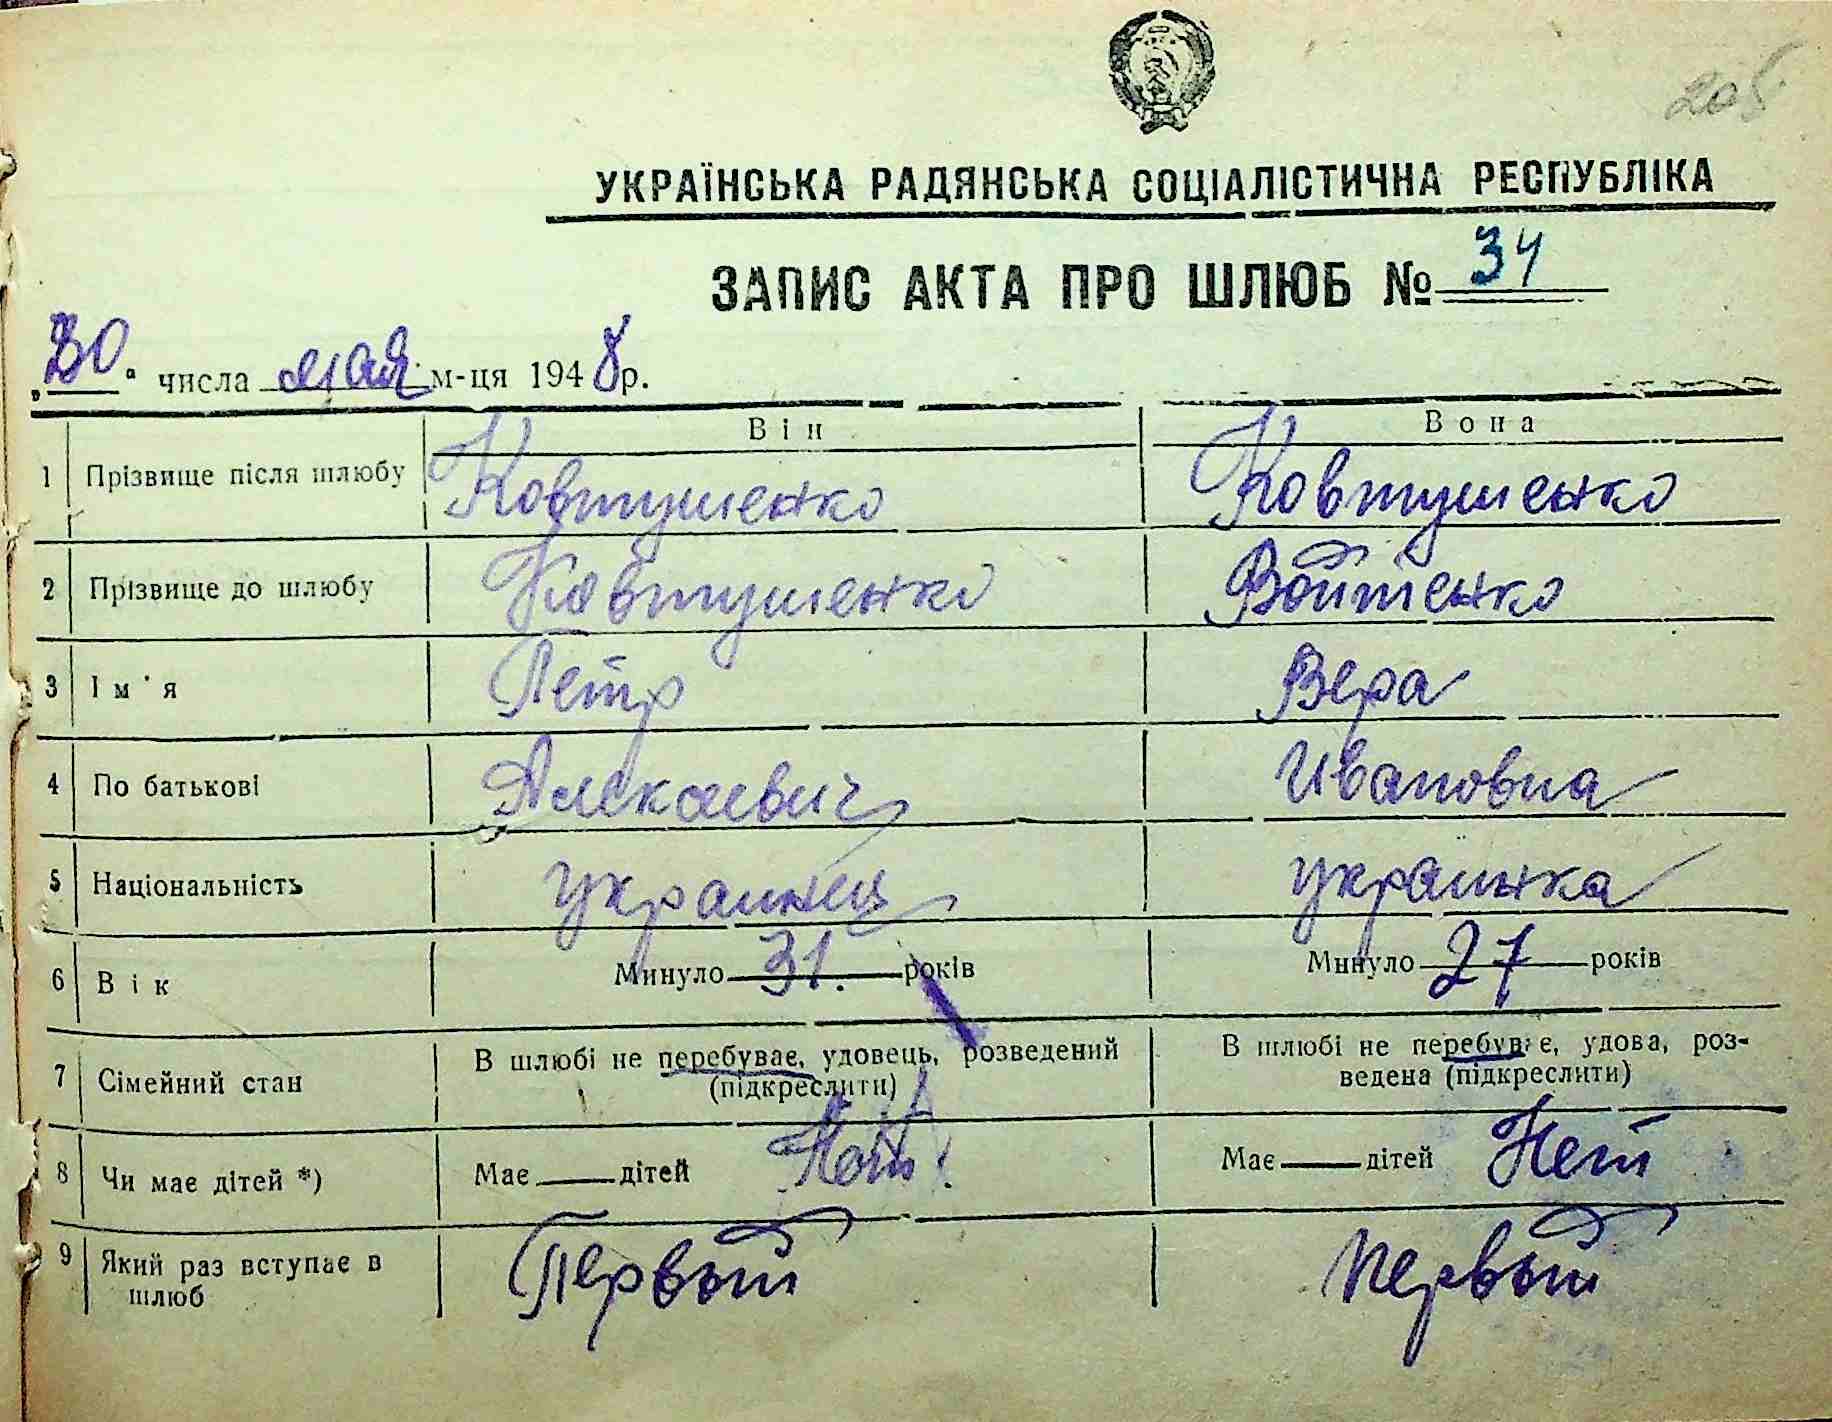 20б.
УКРАЇНСЬКА РАДЯНСЬКА СОЦІАЛІСТИЧНА РЕСПУБЛІКА
ЗАПИС АКТА ПРО ШЛЮБ № 34
„30“ числа мая м-ця 1948р.
Він Вона
1 Прізвище після шлюбу Ковтушенко Ковтушенко
2 Прізвище до шлюбу Ковтушенко Войтенко
3 Ім'я Петр Вера
4 По батькові Алекаевич Ивановна
5 Національність украинец украинка
6 Вік Минуло 31. років Минуло 27 років
7 Сімейний стан В шлюбі не перебуває, удовець, розведений В шлюбі не перебуває, удова, роз-
(підкреслити) ведена (підкреслити)
8 Чи має дітей *) Має — дітей Нет Має — дітей Нет
9 Який раз вступає в Первый Первый
шлюб